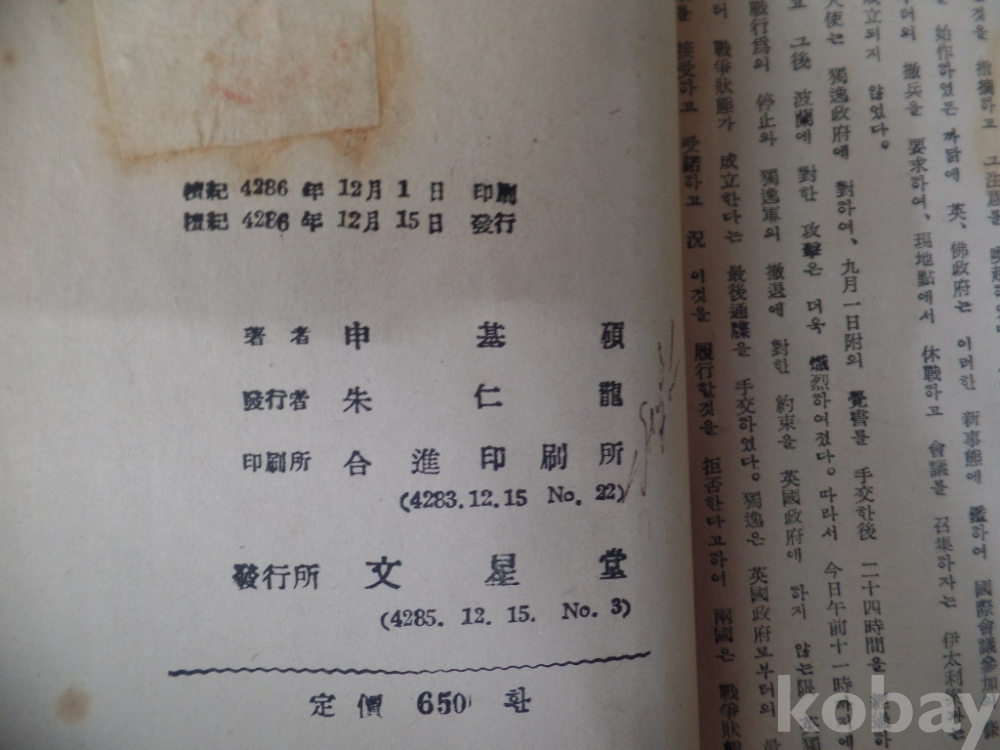 檀紀 4286 年 12月 1 日 印刷
檀紀 4286 年 12月 15日 發行
著者 申基碩
發行者 朱仁龍
印刷所 合進印刷所
(4283.12.15 No. 22)
發行所 文星堂
(4285. 12. 15. No. 3)
定價 650 환
始作하였든 까닭에 英、佛政府는 이러한 新事態에 鑑하여 國際會議參加
撤兵을 要求하여、現地點에서 休戰하고 會議를 召集하자는 伊太利
成立되지 않었다。
大使는 獨逸政府에 對하여、九月一日附의 覺書를 手交한後 二十四時間을
그後 波蘭에 對한 攻擊은 더욱 熾烈하여졌다。따라서 今日午前十一時
戰行爲의 停止와 獨逸軍의 撤退에 對한 約束을 英國政府에 하지 않는限
戰爭狀態가 成立한다는 最後通牒을 手交하였다。獨逸은 英國政府로부터의
接受하고 受諾하고 況 이것을 履行할것을 拒否한다고하여 兩國은 戰爭狀態
kobay